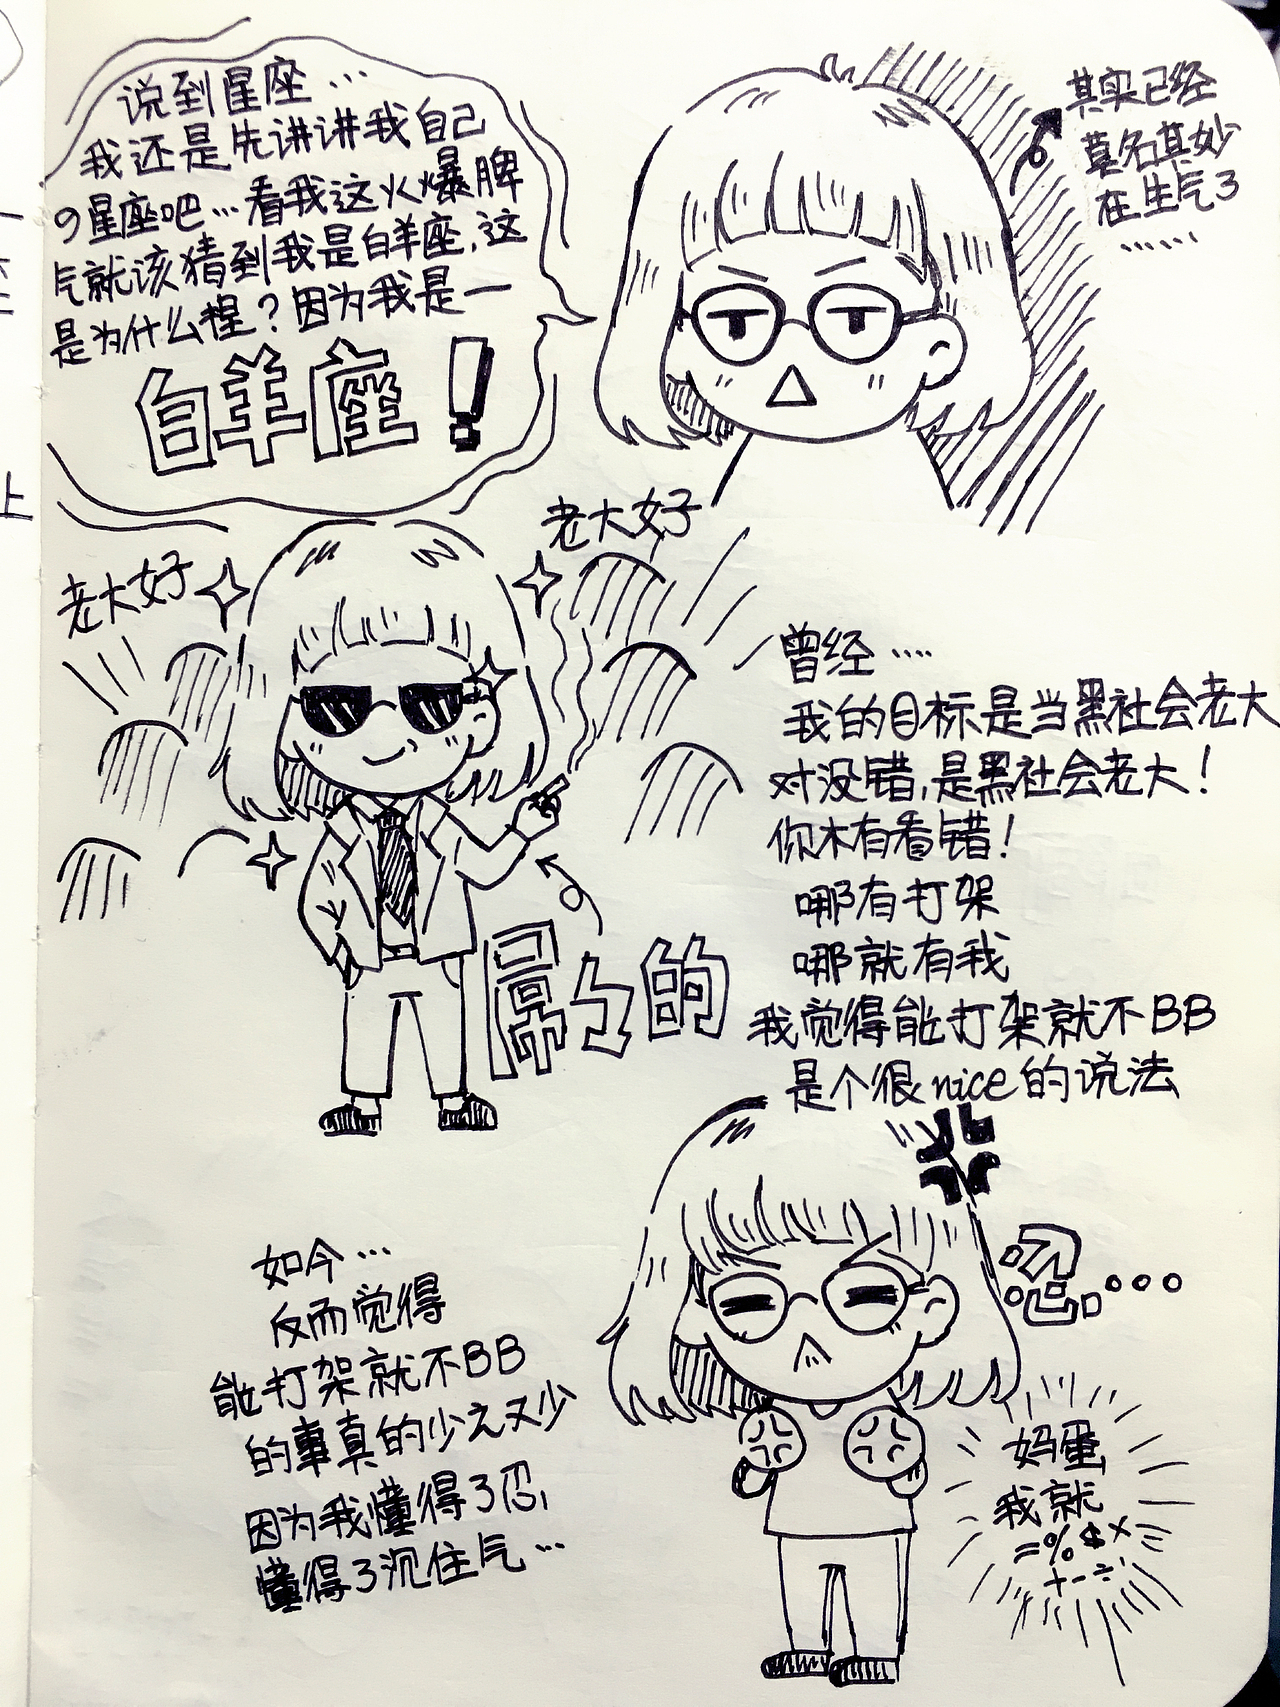 说到星座…
我还是先讲讲我自己
の星座吧…看我这火爆脾
气就该猜到我是白羊座,这
是为什么捏?因为我是一
白羊座!
其实已经
莫名其妙
在生气了
……
老大好
老大好
屌屌的
曾经….
我的目标是当黑社会老大
对没错,是黑社会老大!
你木有看错!
哪有打架
哪就有我
我觉得能打架就不BB
是个很nice的说法
如今…
反而觉得
能打架就不BB
的事真的少之又少
因为我懂得了忍,
懂得了沉住气…
忍...
妈蛋
我就
=%$×=
+-÷